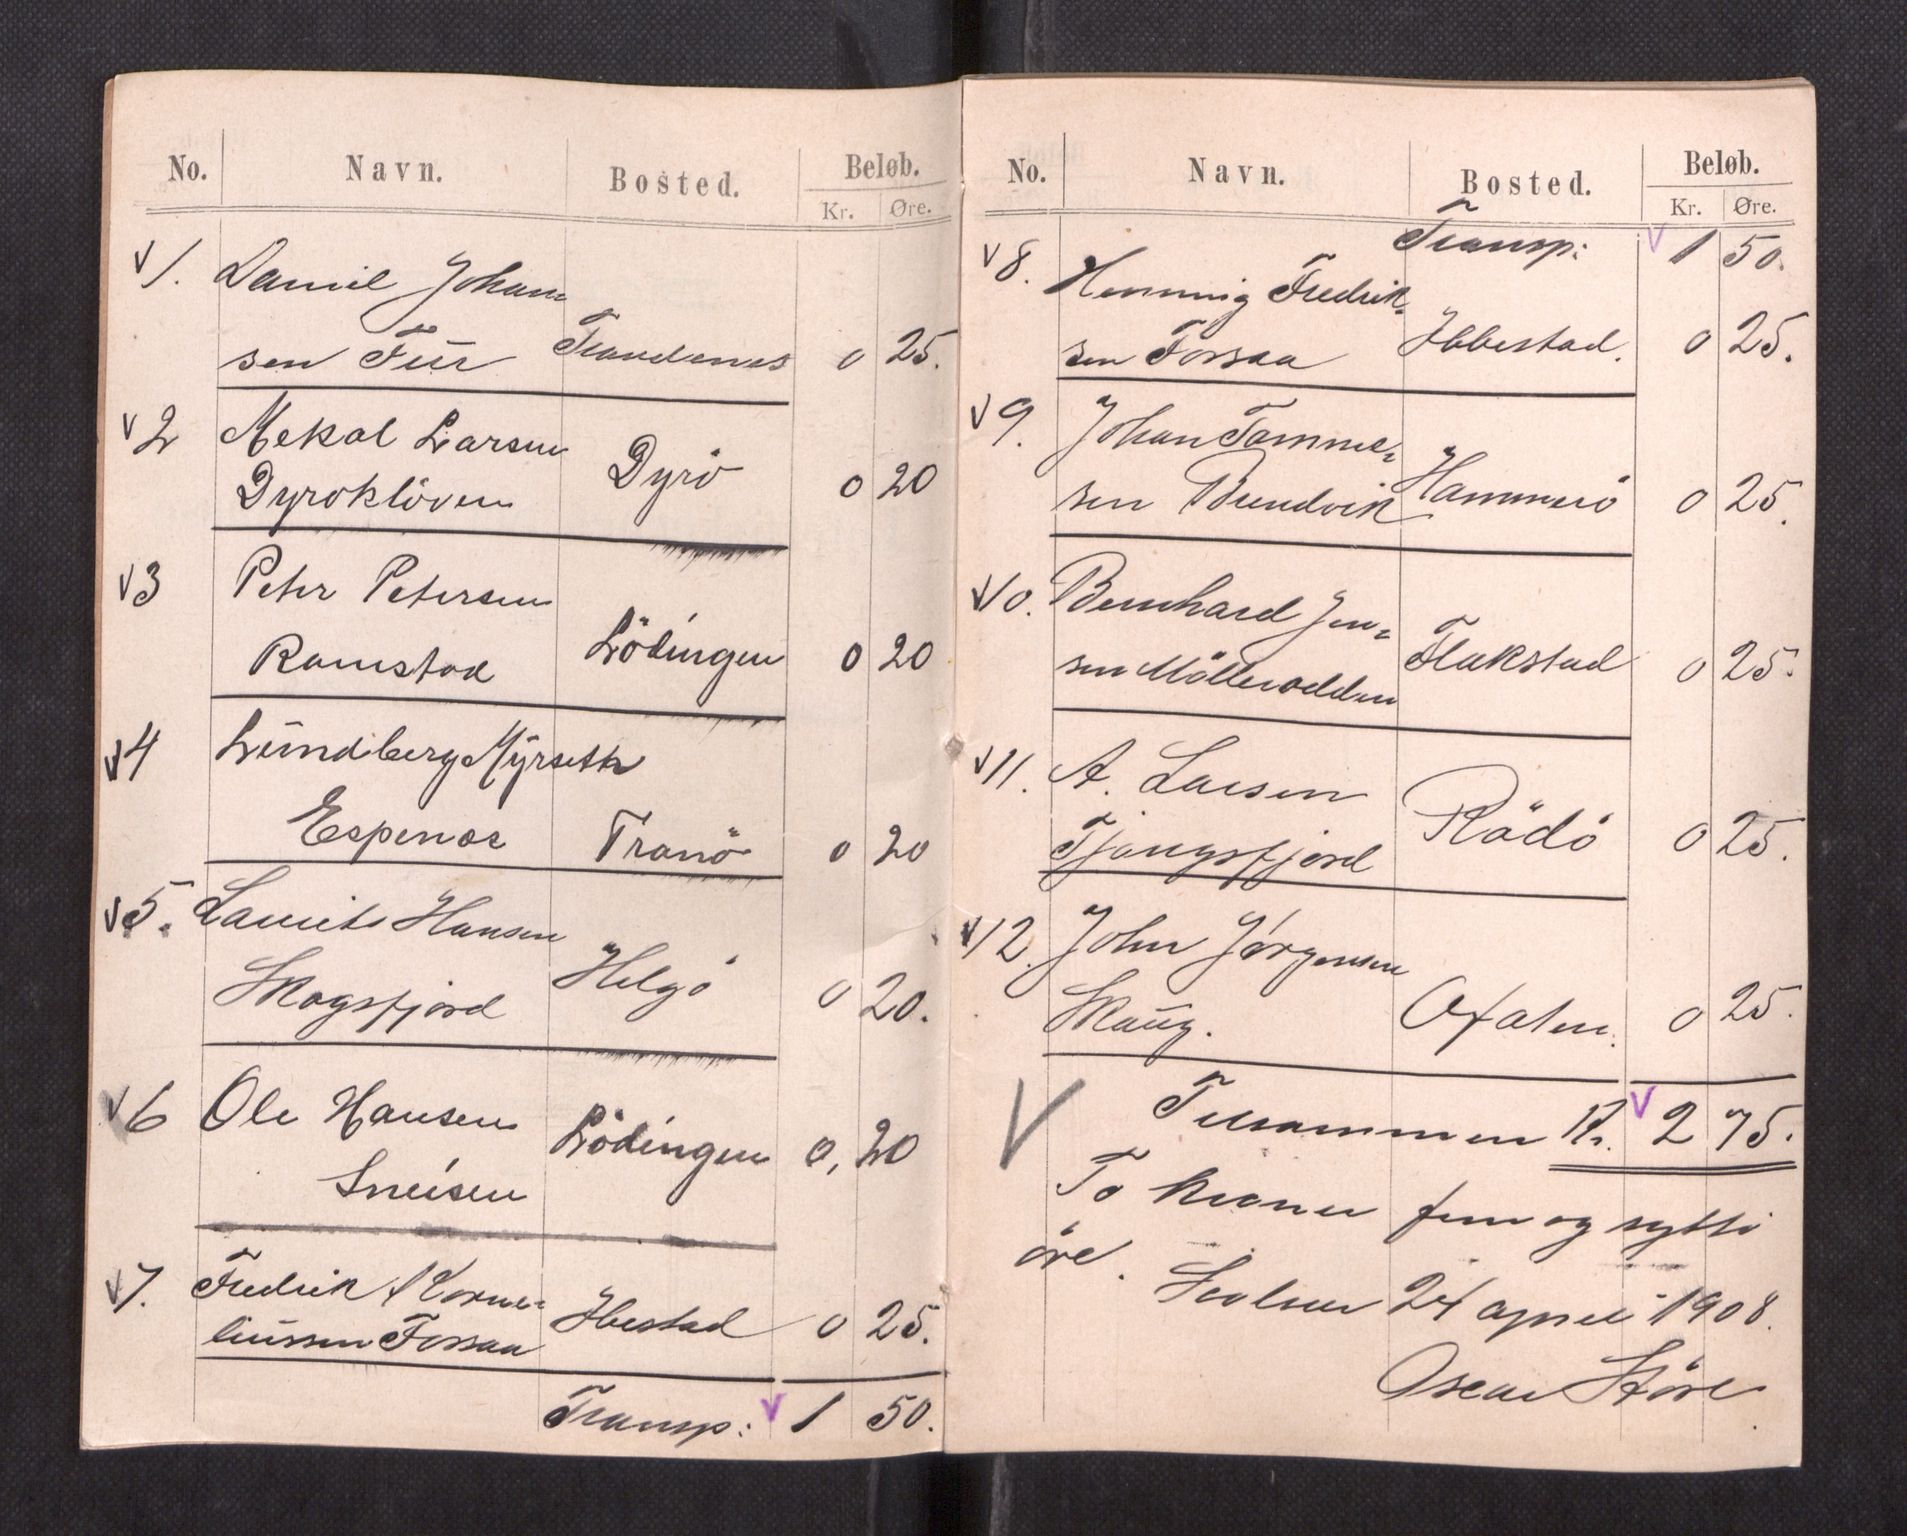 No. Navn. Bosted. Beløb.
Kr. Øre.
v 1. Daniel Johan=
sen Fur Trondenes 0 25.
v 2 Mekal Larsen
Dyroklöven Dyrö 0 20
v 3 Peter Petersen
Ramstad Lödingen 0 20
v 4 Lundberg Myrseth
Espenes Tranö 0 20
v 5. Laurits Hansen
Skogsfjord Helgö 0 20.
v 6 Ole Hansen
Sneisen Lödingen 0, 20
v 7. Fredrik Korne=
liussen Forsaa Ibestad 0 25.
Transp: v 1 50.
No. Navn. Bosted. Beløb.
Kr. Øre.
Transp: v 1 50.
v 8. Henning Fredrik=
sen Forsaa Ibbestad. 0 25.
v 9. Johan Tomme=
sen Brendvik Hammerö 0 25.
v 10. Bernhard Jen=
sen Möllerodden Flakstad 0 25.
v 11. A. Larsen
Tjongsfjord Rödö 0 25.
v 12. John Jörgensen
Skaug. Ofoten. 0 25.
V Tilsammen Kr. v 2 75.
To kroner fem og sytti
öre.
24 april 1908.
Oscar Störe